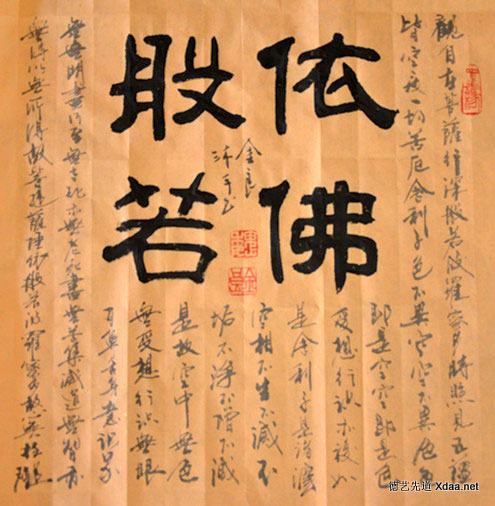 依佛
般若
觀自在菩薩行深般若波羅蜜多時照見五蘊
皆空度一切苦厄舍利子色不異空空不異色色
即是空空即是色
受想行識亦復如
是舍利子是諸法
空相不生不滅不
垢不淨不增不減
是故空中無色
無受想行識無眼
耳鼻舌身意識界
無無明盡乃至無老死亦無老死盡無苦集滅道無智亦
無得以無所得故菩提薩埵依般若波羅蜜多故
金良
沐手书
德艺先道 Xdaa.net